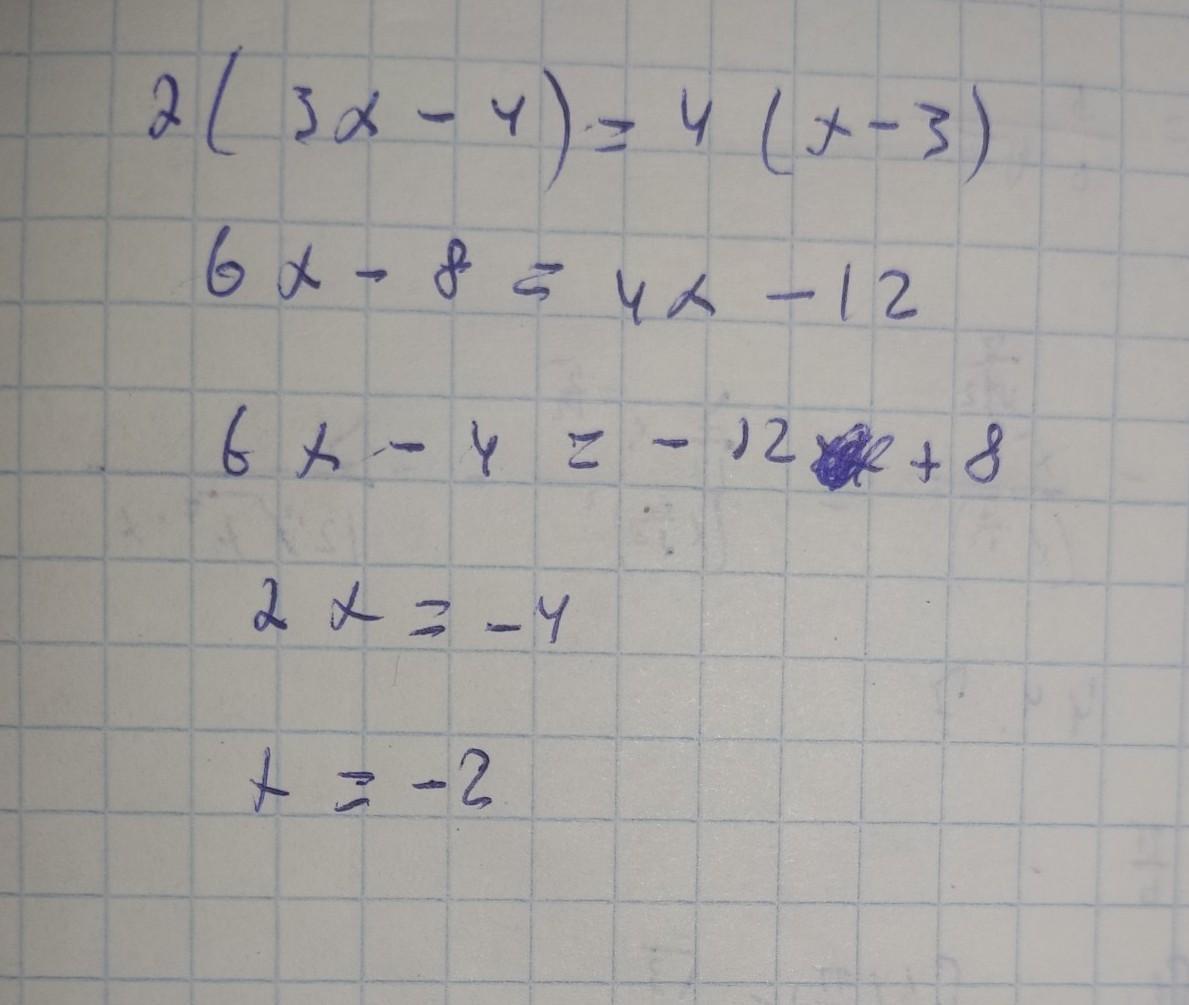 2(3x - 4) = 4(x - 3)
6x - 8 = 4x - 12
6x - 4 = - 12 + 8
2x = -4
x = -2